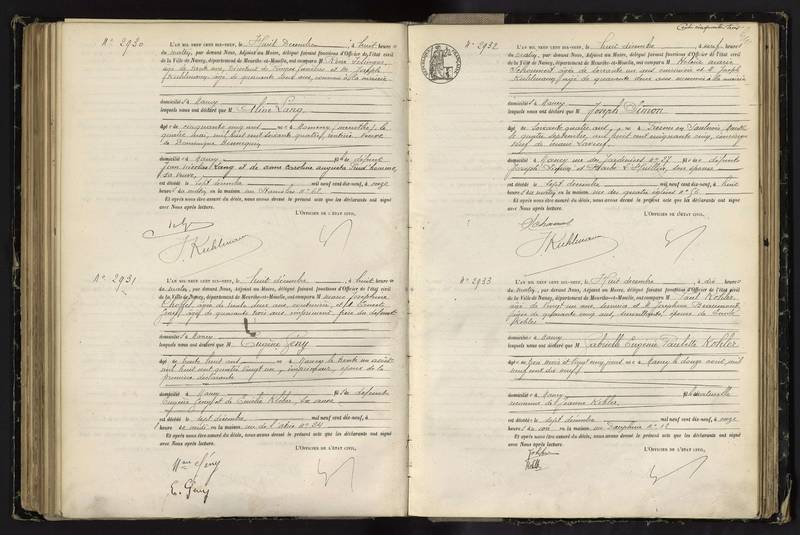 N° 2930
L'AN MIL NEUF CENT DIX-NEUF, le Huit Décembre, à huit heures
du matin, par devant Nous, Adjoint au Maire, délégué faisant fonctions d'Officier de l'état civil
de la Ville de Nancy, département de Meurthe-et-Moselle, ont comparu M René
âgé de trente ans, Directeur de Pompes funèbres et M Joseph
Kuhlmann, âgé de quarante deux ans, commis à la mairie
domiciliés à Nancy
lesquels nous ont déclaré que M Aline Lang
âgée de cinquante cinq ans née à Nomeny (Meurthe) le
quatre mai mil huit cent soixante quatre, veuve
de Dominique
domiciliée à Nancy fille de défunt
Jean Nicolas Lang et de Anne Caroline Augustine
sa veuve
est décédée le sept décembre mil neuf cent dix-neuf, à onze
heures du matin, en la maison, rue Stanislas n° 62
Et après nous être assuré du décès, nous avons dressé le présent acte que les déclarants ont signé
avec Nous après lecture.
L'OFFICIER DE L'ÉTAT CIVIL,
J. Kuhlmann
N° 2931
L'AN MIL NEUF CENT DIX-NEUF, le huit décembre, à huit heures
du matin, par devant Nous, Adjoint au Maire, délégué faisant fonctions d'Officier de l'état civil
de la Ville de Nancy, département de Meurthe-et-Moselle, ont comparu M Marie Joséphine
âgée de trente deux ans, couturière, et M Ernest
Gény, âgé de quarante trois ans, imprimeur, frère du défunt
domiciliés à Nancy
lesquels nous ont déclaré que M Eugène Gény
âgé de trente huit ans né à Nancy le trente un août
mil huit cent quatre vingt un, imprimeur, époux de la
première déclarante
domicilié à Nancy fils de défunt
Eugène Gény et de Emélie Kleber, sa veuve
est décédé le sept décembre mil neuf cent dix-neuf, à
heures de midi, en la maison, rue de l'abbé n° 24
Et après nous être assuré du décès, nous avons dressé le présent acte que les déclarants ont signé
avec Nous après lecture.
L'OFFICIER DE L'ÉTAT CIVIL,
Mme Gény
E. Gény
N° 2932
L'AN MIL NEUF CENT DIX-NEUF, le huit décembre, à neuf heures
du matin, par devant Nous, Adjoint au Maire, délégué faisant fonctions d'Officier de l'état civil
de la Ville de Nancy, département de Meurthe-et-Moselle, ont comparu M Hélène Marie
âgée de soixante un ans, et M Joseph
Kuhlmann, âgé de quarante deux ans commis à la mairie
domiciliés à Nancy
lesquels nous ont déclaré que M Joseph Simon
âgé de soixante quatre ans, né à
le quatre septembre mil huit cent cinquante cinq,
veuf de
domicilié à Nancy rue des Jardiniers n° 27 fils de défunts
Joseph Simon et Marie L'Huillier, son épouse
est décédé le sept décembre mil neuf cent dix-neuf, à huit
heures du matin, en la maison, rue des quatre églises n° 50
Et après nous être assuré du décès, nous avons dressé le présent acte que les déclarants ont signé
avec Nous après lecture.
L'OFFICIER DE L'ÉTAT CIVIL,
J. Kuhlmann
N° 2933
L'AN MIL NEUF CENT DIX-NEUF, le Huit décembre, à dix heures
du matin, par devant Nous, Adjoint au Maire, délégué faisant fonctions d'Officier de l'état civil
de la Ville de Nancy, département de Meurthe-et-Moselle, ont comparu M Paul Kohler,
âgé de vingt un ans, et M Joséphine
âgée de quarante cinq ans, épouse de
Kohler
domiciliés à Nancy
lesquels nous ont déclaré que M Gabrielle Eugénie Paulette Kohler
âgée de trois mois et vingt cinq jours née à Nancy le douze août mil
neuf cent dix neuf
domiciliée à Nancy fille naturelle
reconnue de Jeanne Kohler
est décédée le sept décembre mil neuf cent dix-neuf, à onze
heures du soir, en la maison, rue Dauphine n° 12
Et après nous être assuré du décès, nous avons dressé le présent acte que les déclarants ont signé
avec Nous après lecture.
L'OFFICIER DE L'ÉTAT CIVIL,